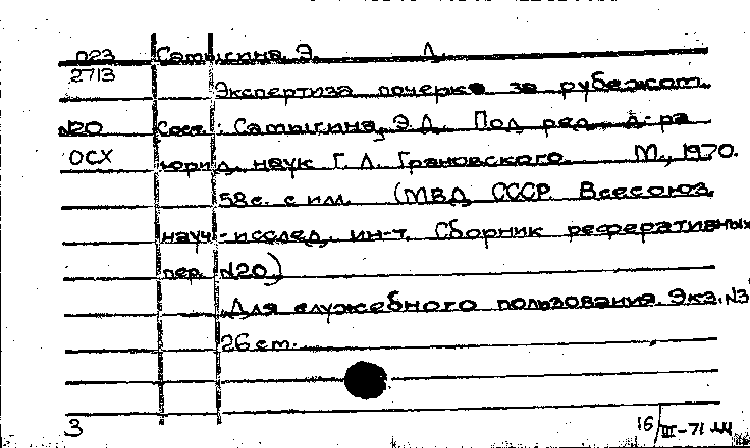 п23 Сатыгина, Э. Д.
2713
Экспертиза почерка за рубежом.
N20 Сост.: Сатыгина, Э.Д. Под ред. д-ра
ОСХ юрид. наук Г. Л. Грановского. М., 1970.
58с. с илл. (МВД СССР. Всесоюз.
науч-исслед. ин-т. Сборник реферативных
пер. N20)
Для служебного пользования. Экз. N3
26 ст.
3 16/III-71